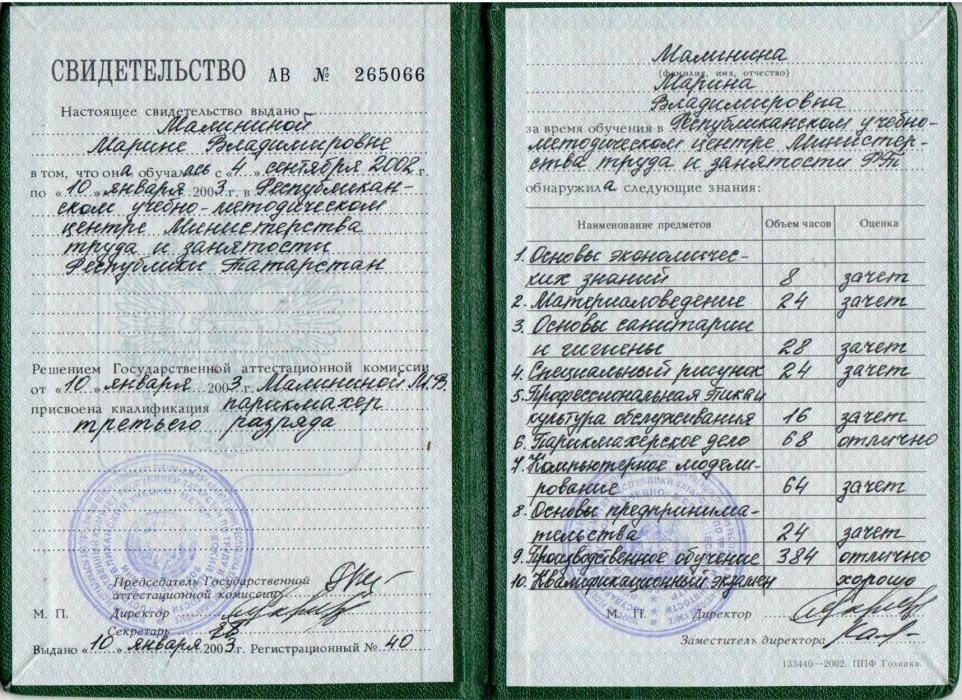 СВИДЕТЕЛЬСТВО АВ № 265066
Настоящее свидетельство выдано
Малининой
Марине Владимировне
в том, что она обучалась с «4» сентября 2002 г.
по «10» января 2003 г. в Республикан-
ском учебно-методическом
центре Министерства
труда и занятости
Республики Татарстан
Решением Государственной аттестационной комиссии
от «10» января 2003 г. Малининой М.В.
присвоена квалификация парикмахер
третьего разряда
Председатель Государственной
аттестационной комиссии
М. П. Директор
Секретарь
Выдано «10» января 2003 г. Регистрационный № 40
Малинина
(фамилия, имя, отчество)
Марина
Владимировна
за время обучения в Республиканском учебно-
методическом центре Министер-
ства труда и занятости РТ
обнаружила следующие знания:
Наименование предметов Объем часов Оценка
1. Основы экономичес-
ких знаний 8 зачет
2. Материаловедение 24 зачет
3. Основы санитарии
и гигиены 28 зачет
4. Специальный рисунок 24 зачет
5. Профессиональная этика и
культура обслуживания 16 зачет
6. Парикмахерское дело 68 отлично
7. Компьютерное модели-
рование 64 зачет
8. Основы предпринима-
тельства 24 зачет
9. Производственное обучение 384 отлично
10. Квалификационный экзамен хорошо
М. П. Директор
Заместитель директора
133440—2002. ППФ Гознака.